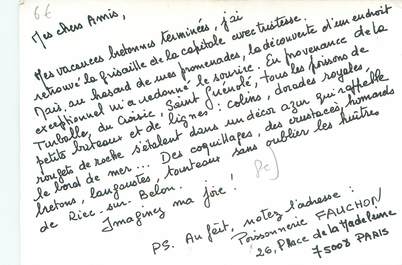 6€
Mes chers Amis,
Mes vacances bretonnes terminées, j'ai
retrouvé la grisaille de la capitale avec tristesse.
Mais, au hasard de mes promenades, la découverte d'un endroit
exceptionnel m'a redonné le sourire. En provenance de la
Turballe, du Croisic, Saint Guénolé, tous les poissons de
petits bateaux et de lignes : colins, dorades royales,
rougets de roche s'étalent dans un décor azur qui rappelle
le bord de mer... Des coquillages, des crustacés, homards
bretons, langoustes, tourteaux sans oublier les huîtres
de Riec-sur-Belon.
Imaginez ma joie !
PS. Au fait, notez l'adresse :
Poissonnerie FAUCHON
26, Place de la Madeleine
75008 PARIS